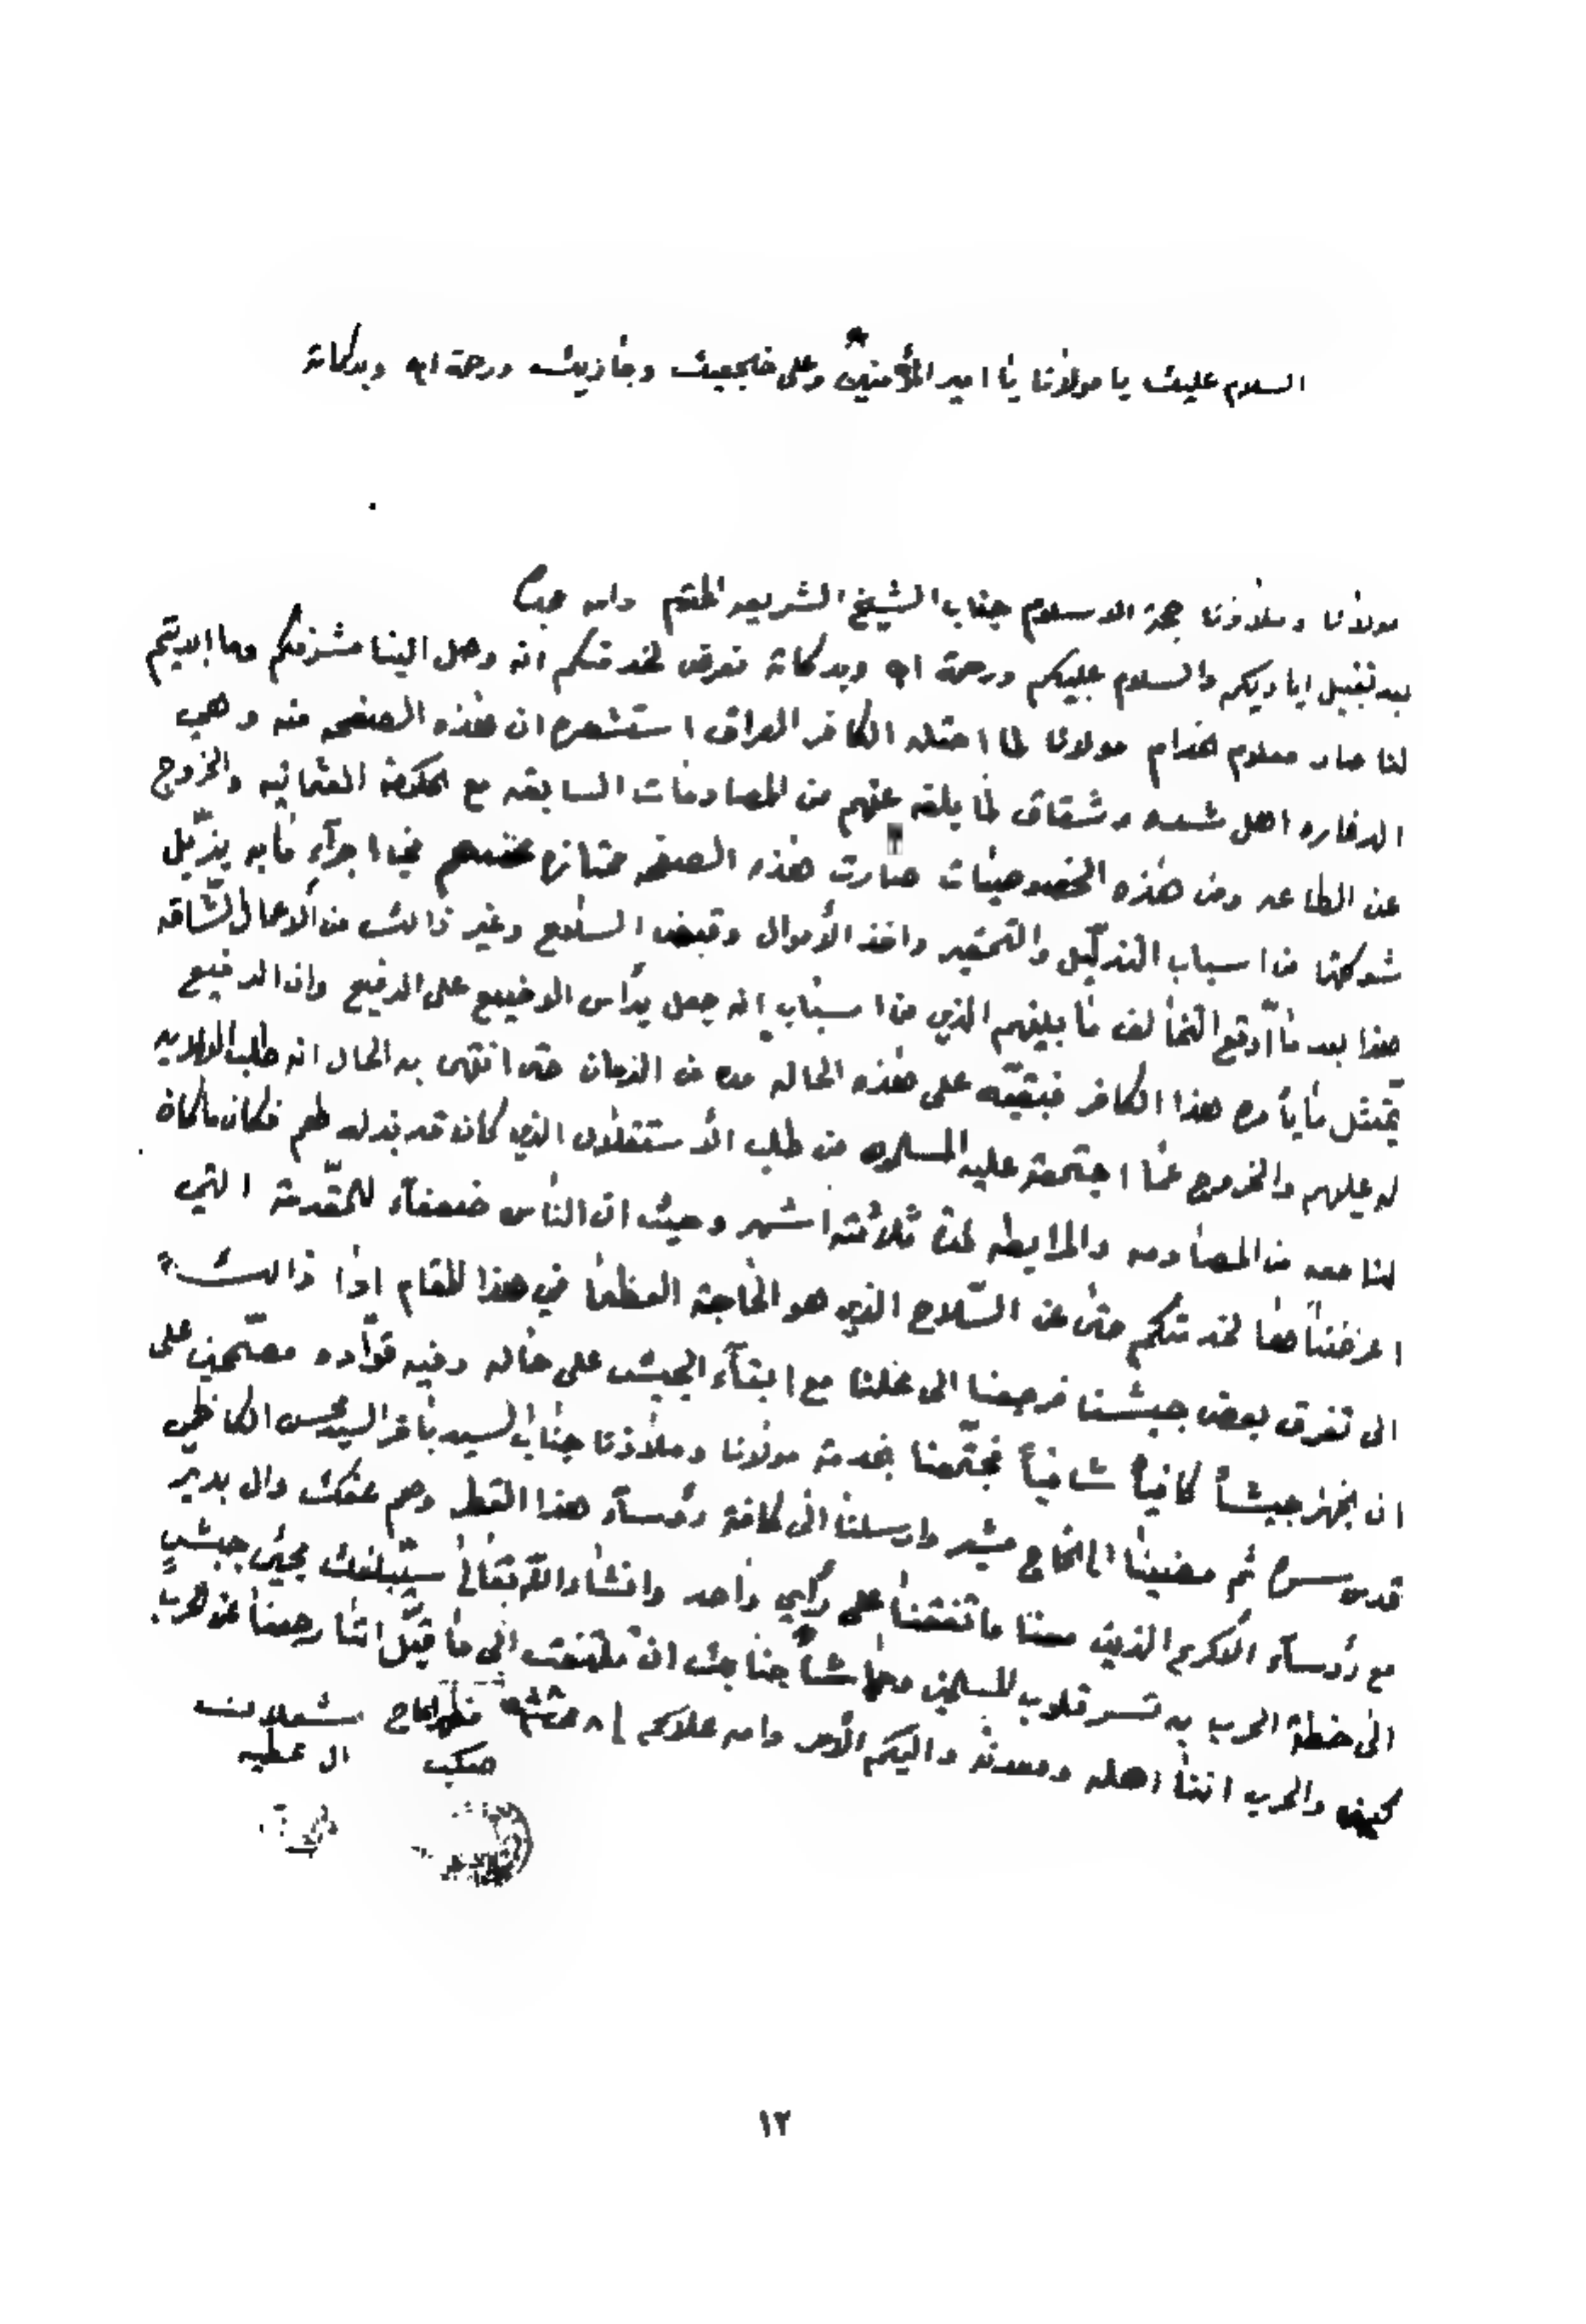 السلام عليك يا مولانا يا امير المؤمنين وعلى ضجيعيك وجاريك ورحمة الله وبركاته
مولانا وملاذنا حجة الاسلام جناب الشيخ الشريعه المحترم دامه
بعد تقبيل اياديكم والسلام عليكم ورحمة الله وبركاته نعرض لخدمتكم انه وصل الينا مشرفكم وما ابديتم
لنا صار معلوم لخدام مولانا لما احتله الكافر العراق استشعره ان هذه الصفحه منه وهي
الدغاره اهل شده وشقاق لما يبلغه عنهم من المصادمات السابقه مع الحكومة العثمانيه والخروج
عن الطاعه ومن هذه الخصوصيات صارت هذه الصفحه ممتازه عندهم في اجرآء مابه يذيّل
شوكتنا من اسباب التذليل والتحقير واخذ الأموال وقبض السلاح وغير ذالك من الأعمال الشاقه
هذا بعد ما اوقع التخالف ما بينهم الذي من اسبابه انه جعل يرأس الوضيع على الرفيع وان الرفيع
يمتثل ما يأمره هذا الكافر فبقيت على هذه الحاله مده من الزمان حتى انتهى به الحال انه طلب الولايه
له عليهم والخروج عما اجتمعت عليه المسلمون من طلب الأستقلال الذي كان قد بذله لهم فكان ما كان
لنا معه من المصادمه والمرابطه لمدة ثلاثة اشهر وحيث ان الناس ضعفآء للمقدمة التي
اعرضناها لخدمتكم حتى عن السلاح الذي هو الحاجة العظما في هذا المقام ادا ذالك
الى تفرق بعض جيشنا فرجعنا الى محلنا مع ابقآء الجيش على حاله وفيه قوّاده مصممين على
ان نجهز جيشاً كافياً شافياً فجتمعنا بخدمة مولانا وملاذنا جناب السيد باقر السيد محسن الكاظمي
قدس سره ثم مضينا الى الحاج مشير وارسلنا الى كافة رؤسآء هذا القطر وهم عفك وال بدير
مع رؤسآء الاكرع الذين معنا ماتفقنا على رأيي واحد وانشاء الله تعالى سيبلغك بجيئ جيشي
الى خطة الحرب به تسر قلوب المسلمين وحاشا جنابك ان تلتفت الى ما قيل اننا رجعنا عن الحرب
كيف والحرب اننا اهله ومعدنه واليكم الأمر دامه علاكم
مظهر الحاج شعلان
صكب ال عطيه
١٢